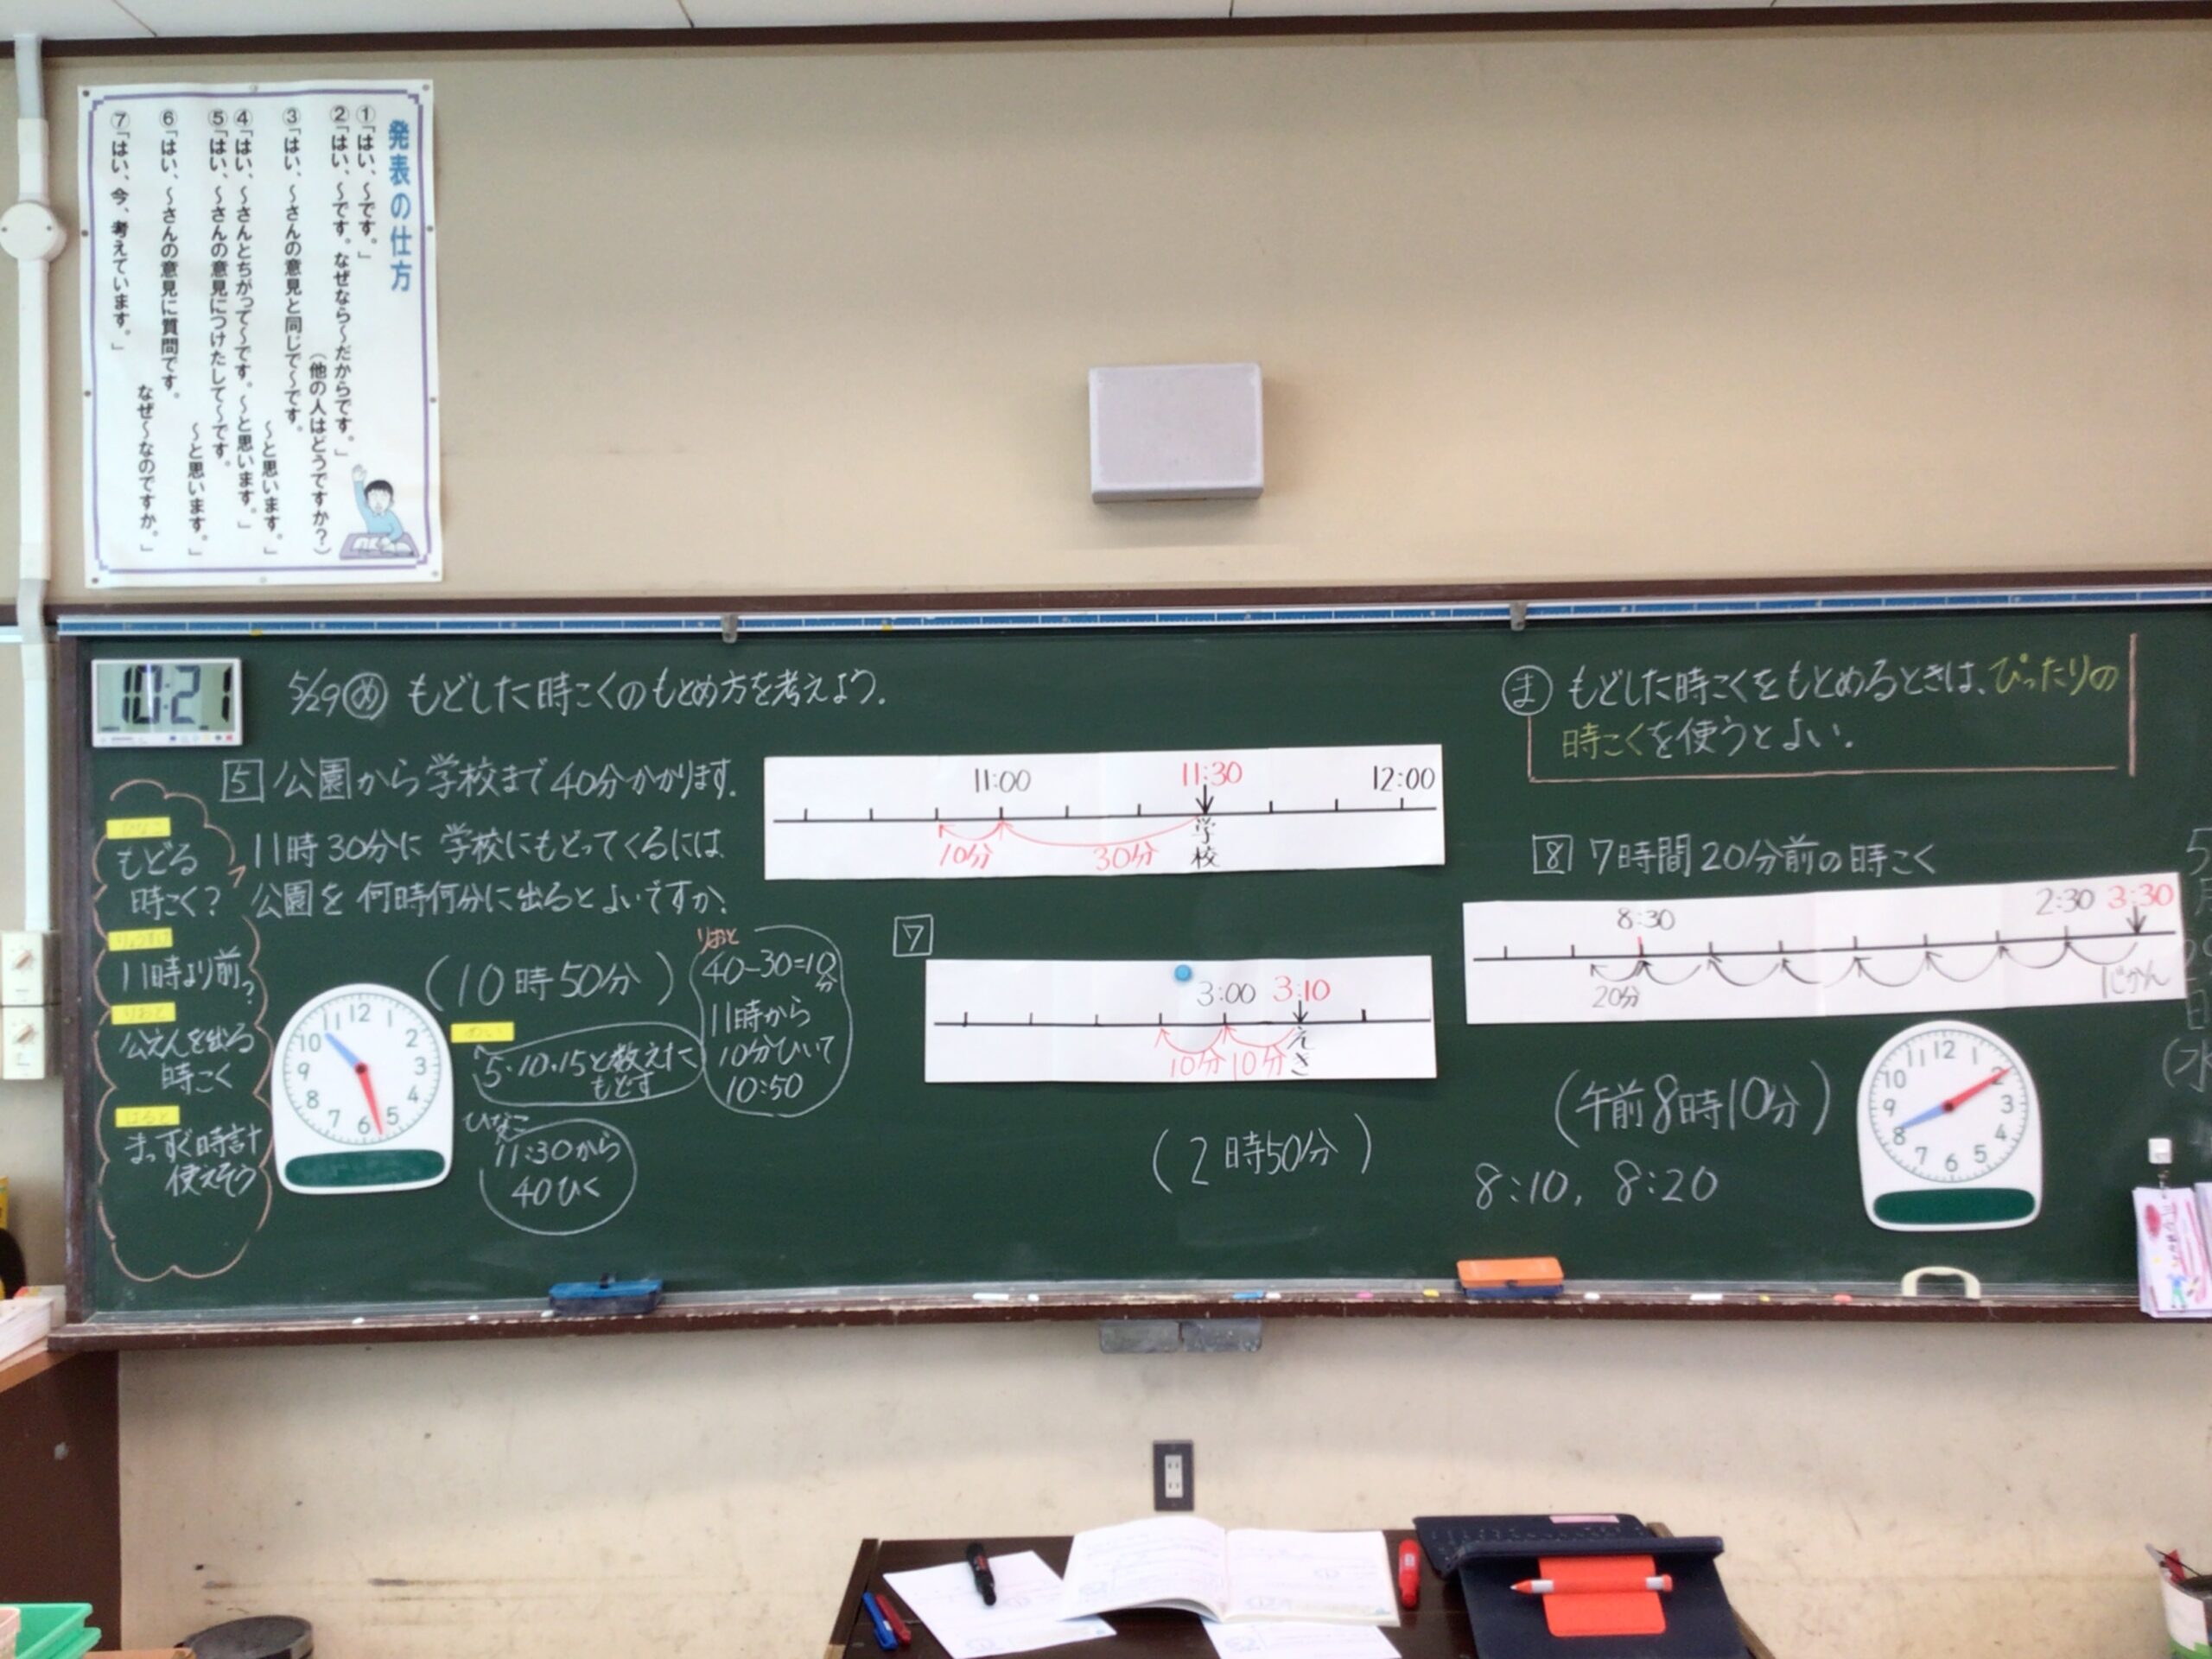 発表の仕方
①「はい、～です。」
②「はい、～です。なぜなら～だからです。」
（他の人はどうですか？）
③「はい、～さんの意見と同じで～です。
～と思います。」
④「はい、～さんとちがって～です。～と思います。」
⑤「はい、～さんの意見につけたして～です。
～と思います。」
⑥「はい、～さんの意見に質問です。
なぜ～なのですか。」
⑦「はい、今、考えています。」
10:21
5/29 め もどした時こくのもとめ方を考えよう。
5 公園から学校まで40分かかります。
11時30分に学校にもどってくるには
公園を何時何分に出るとよいですか。
ひなこ
もどる
時こく?
りょうすけ
11時より前?
りおと
公えんを出る
時こく
はると
まっすぐ時計
使えそう
(10時50分)
12 1 2 3 4 5 6 7 8 9 10 11
めい
5・10・15と数えた
もどす
ひなこ
11:30から
40ひく
りおと
40-30=10分
11時から
10分ひいて
10:50
11:00 11:30 12:00
10分 30分 学校
7
3:00 3:10
10分 10分 えき
(2時50分)
ま もどした時こくをもとめるときは、ぴったりの
時こくを使うとよい。
8 7時間20分前の時こく
8:30 2:30 3:30
20分 1じかん
(午前8時10分)
8:10, 8:20
12 1 2 3 4 5 6 7 8 9 10 11
5
月
29
日
(水